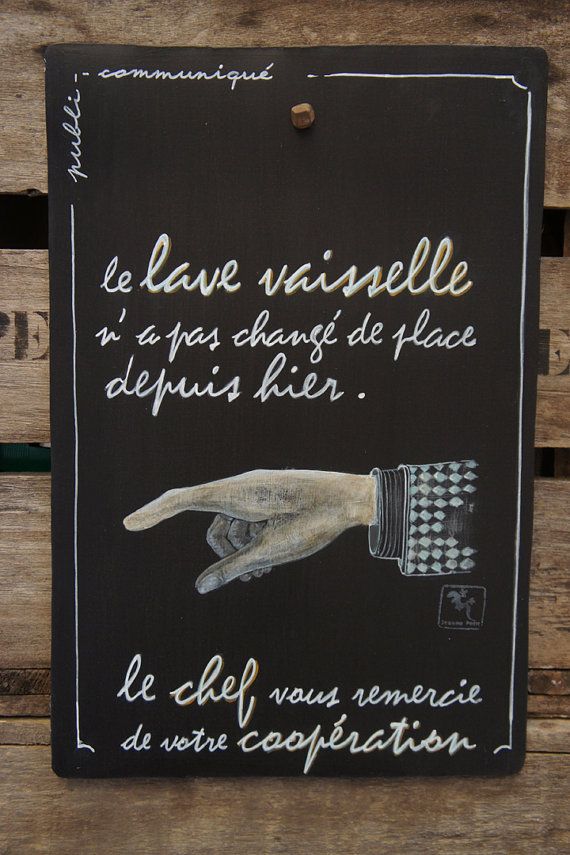 publi-communiqué
le lave vaisselle
n'a pas changé de place
depuis hier.
le chef vous remercie
de votre coopération